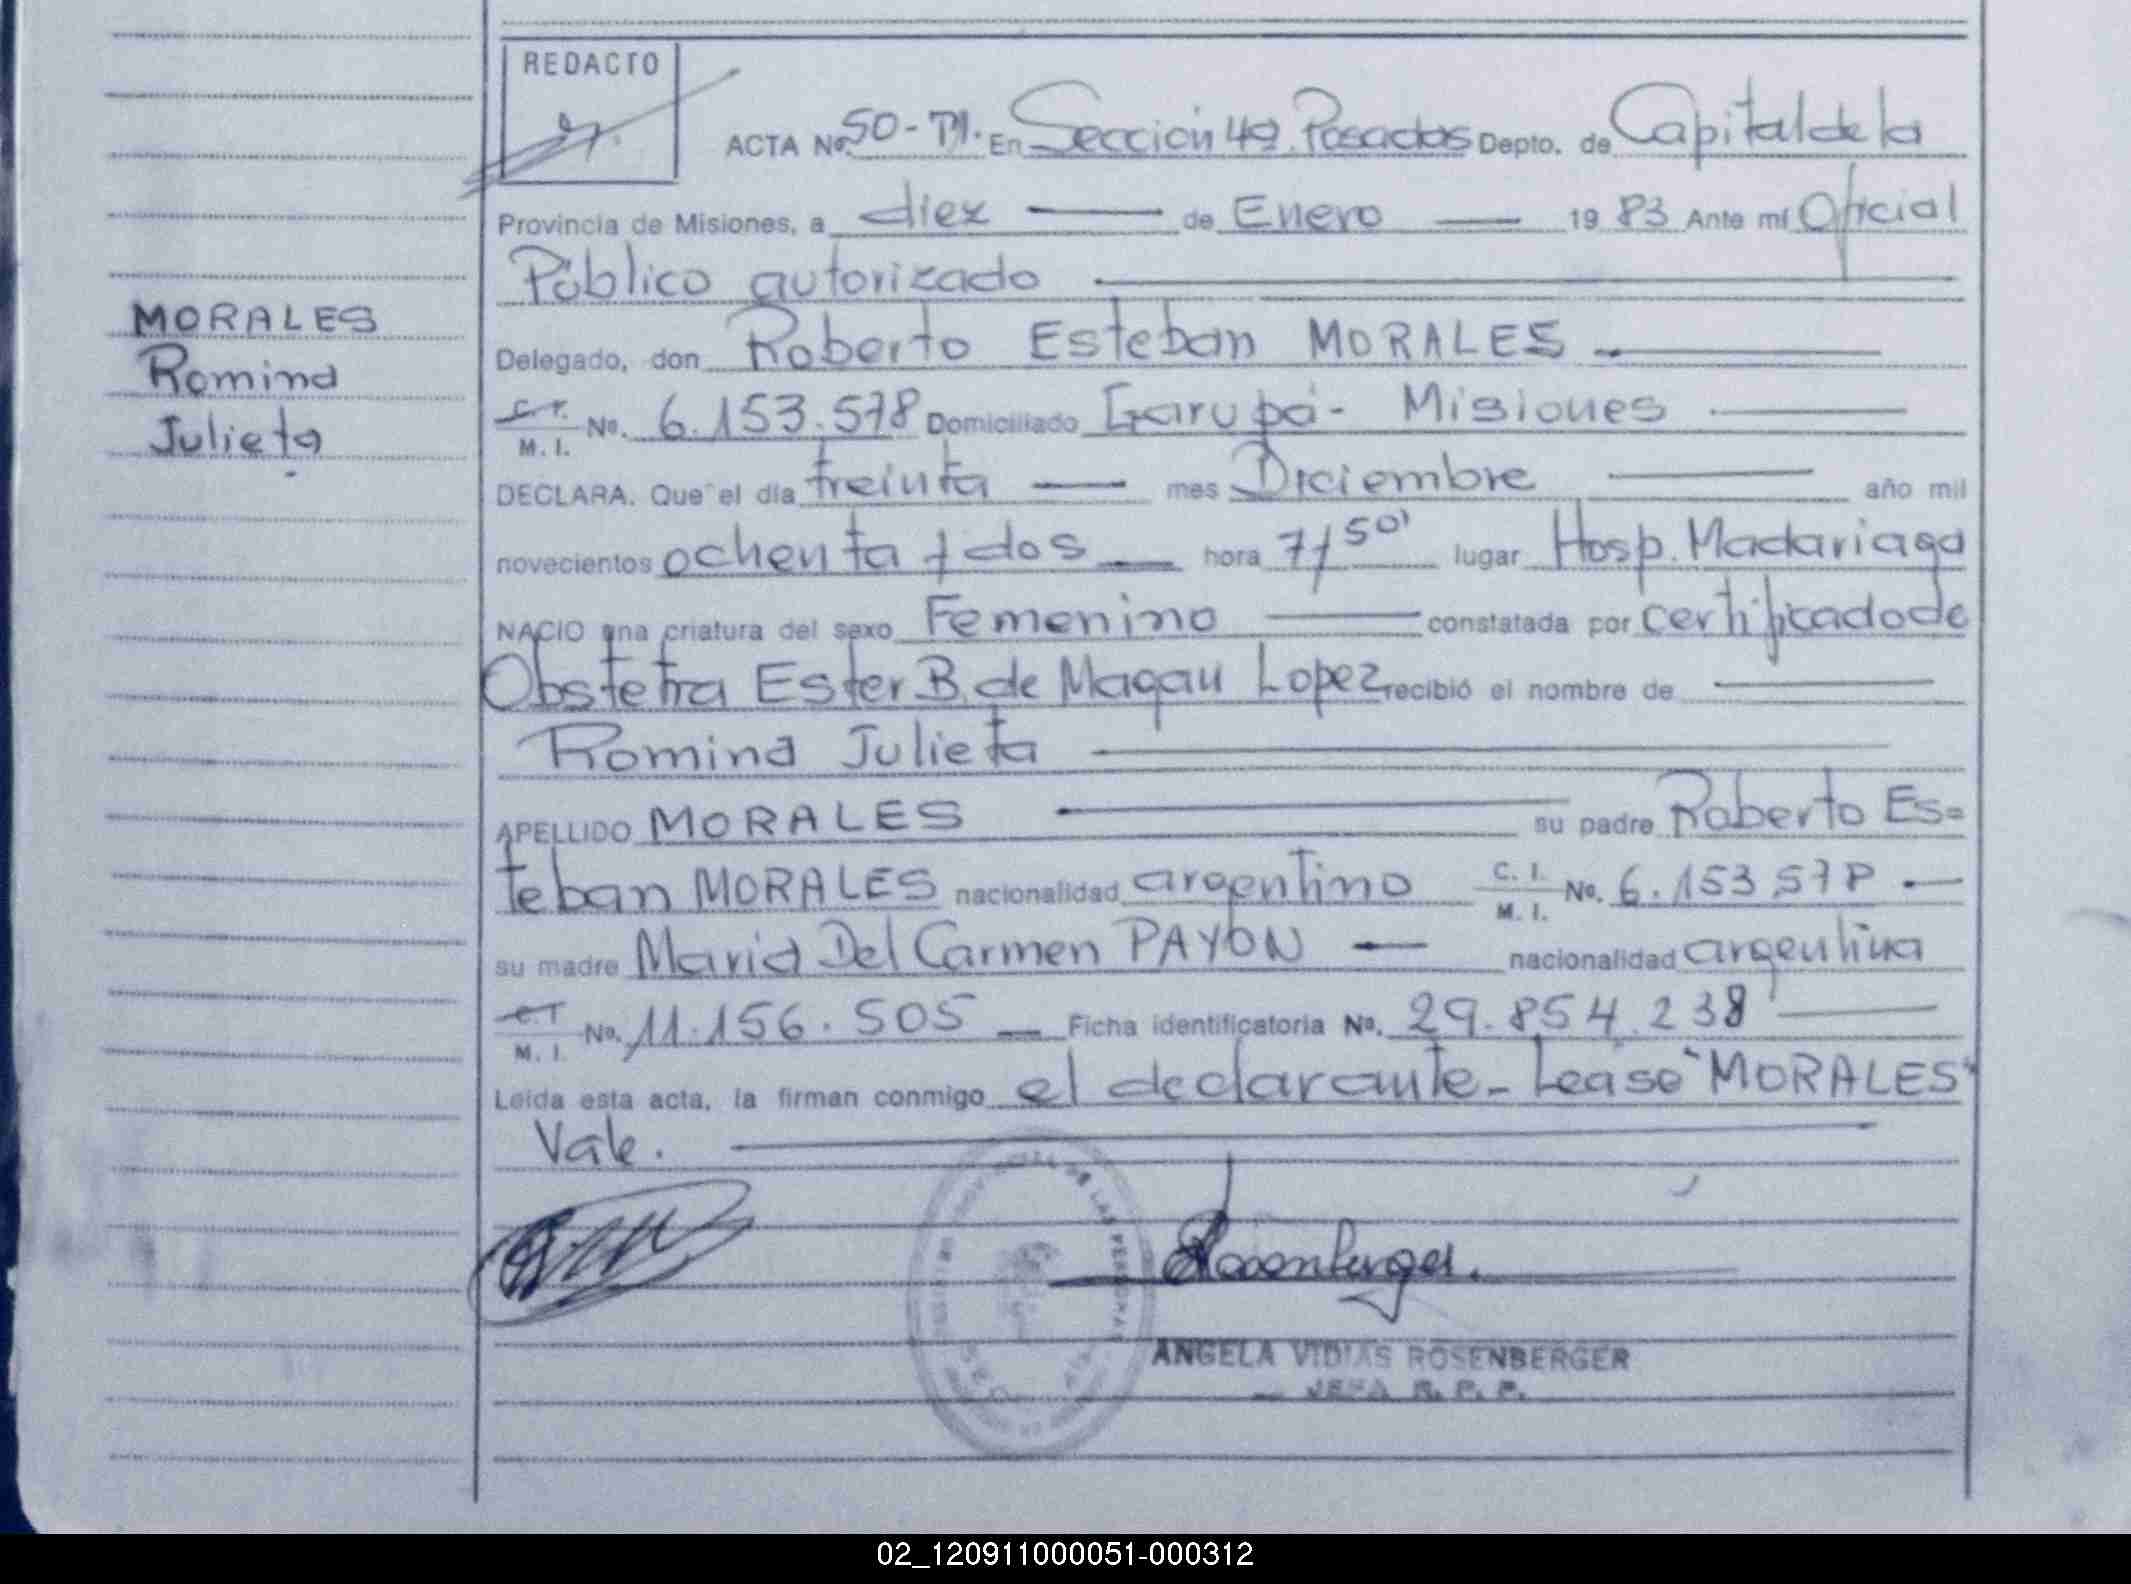 REDACTO
ACTA Nº 50-TI. En Sección 4ª. Posadas Depto. de Capital de la
Provincia de Misiones, a diez de Enero 1983 Ante mí Oficial
Público autorizado
Delegado, don Roberto Esteban MORALES
C. I. M. I. No. 6.153.578 Domiciliado Garupá - Misiones
MORALES
Romina
Julieta
DECLARA. Que el día treinta mes Diciembre año mil
novecientos ochenta y dos hora 7/50' lugar Hosp. Madariaga
NACIO una criatura del sexo Femenino constatada por certificado de
Obstetra Ester B. de Magau Lopez recibió el nombre de
Romina Julieta
APELLIDO MORALES su padre Roberto Es=
teban MORALES nacionalidad argentino C. I. M. I. No. 6.153.578
su madre Maria Del Carmen PAYON nacionalidad argentina
C. I. M. I. No. 11.156.505 Ficha identificatoria No. 29.854.238
Leída esta acta, la firman conmigo el declarante - Lease "MORALES"
Vale.
Rosenberger.
ANGELA VIDIAS ROSENBERGER
JEFA R. P. P.
02_120911000051-000312